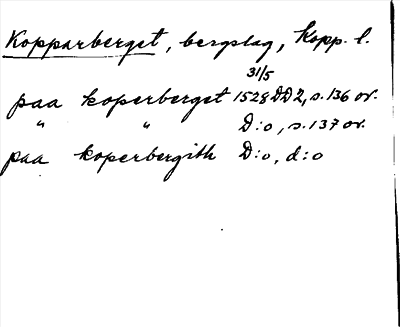 Kopparberget, bergslag, Kopp. l.
31/5
paa koperberget 1528 DD2, s. 136 ov.
" " D:o, s. 137 ov.
paa koperbergith D:o, d:o